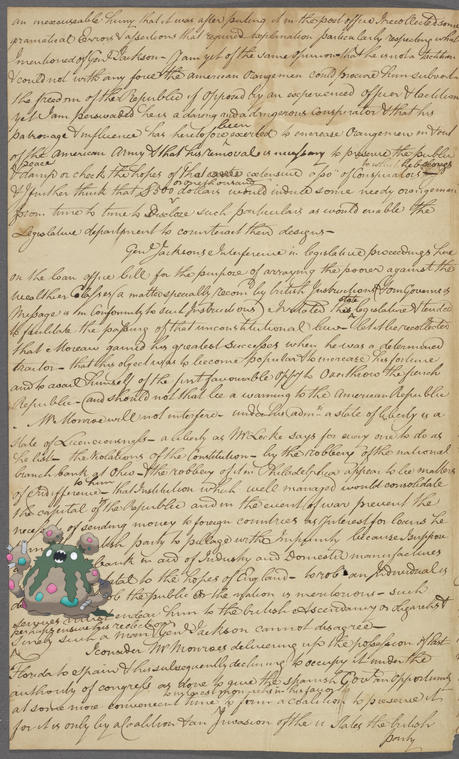 an inexcuseable hurry that it was after putting it in the post office I recollected some
gramatical Errors & assertions that required explanation particularly respecting what
I mentioned of Genl Jackson - I am yet of the same opinion that he is not a tactition
& could not with any force the American Orangemen could procure him subvert
the freedom of the Republic if opposed by an experienced officer & tactition
yet I am perswaded he is a daring and a dangerous conspirator & that his
patronage & influence has heretofore been exerted to encrease Orangemen in & out
of the American Army & that his removal is necessary to preserve the public
peace & damp or check the hopes of that extensive of conspirators to which he belongs
& further think that $500 or one thousand dollars would induce some needy orangeman
from time to time to Disclose such particulars as would enable the
Legislative department to counteract their designs -
Genl Jacksons Interference in legislative proceedings here
on the loan office bill for the purpose of arraying the poorer against the
wealthier Classes (a matter specially recomd by british Instructions & Tom
message is in conformity to such Instructions) Insulated this state legislature & tended
to facilitate the passing of that unconstitutional law - let it be recollected
that Moreau gained his greatest successes when he was a determined
traitor - that his object was to become popular & to increase his fortune
and to avail himself of the first favourable oppy to Overthrow the french
Republic - (and should not that be a warning to the American Republic
Mr Monroe will not interfere - under his admn a state of liberty is a
state of Licenciousness - a liberty as Mr Locke says for every one to do as
he list - the violations of the Constitution - by the robbery of the national
branch bank at Ohio - & the robbery of it in Philadelphia appear to be matters
of indifference to him - that Institution which well managed would consolidate
the capital of the Republic and in the event of war prevent the
necessity of sending money to foreign countries as Interest for loans he
party to pillage with Impunity because I suppose
bank in aid of Industry and Domestic manufactures
to the hopes of England - to rob an Individual is
rob the public or the nation is meritorious - such
services must endear him to the british Ascendancy or Oligarchs &
perhaps ensure his reelection
surely such a man Genl Jackson cannot disagree -
I consider Mr Monroes delivering up the possession of East
Florida to Spain & his subsequently declining to occupy it under the
authority of congress as done to give the spanish Govt an opportunity
to in his favor &
at some more convenient time to form a coalition to preserve it
for it is only by a Coalition & an Invasion of the u States the british
party